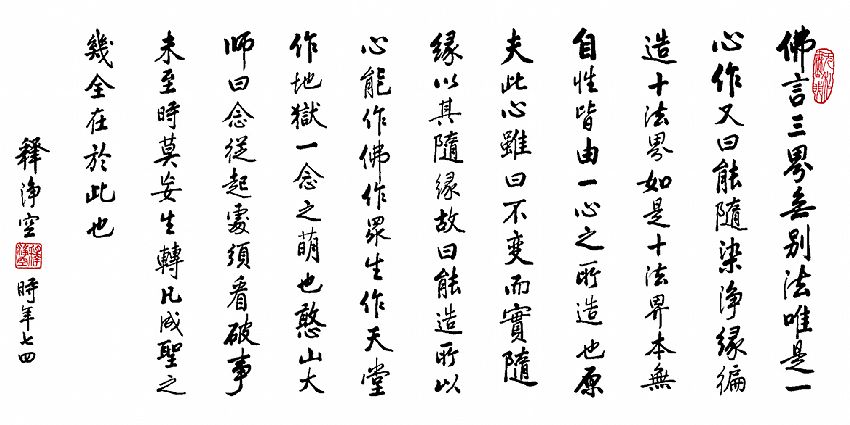 佛言三界無別法唯是一
心作又曰能隨染淨緣徧
造十法界如是十法界本無
自性皆由一心之所造也原
夫此心雖曰不变而實隨
緣以其隨緣故曰能造所以
心能作佛作眾生作天堂
作地獄一念之萌也憨山大
師曰念從起處須看破事
未至時莫妄生轉凡成聖之
幾全在於此也
釋淨空 時年七四